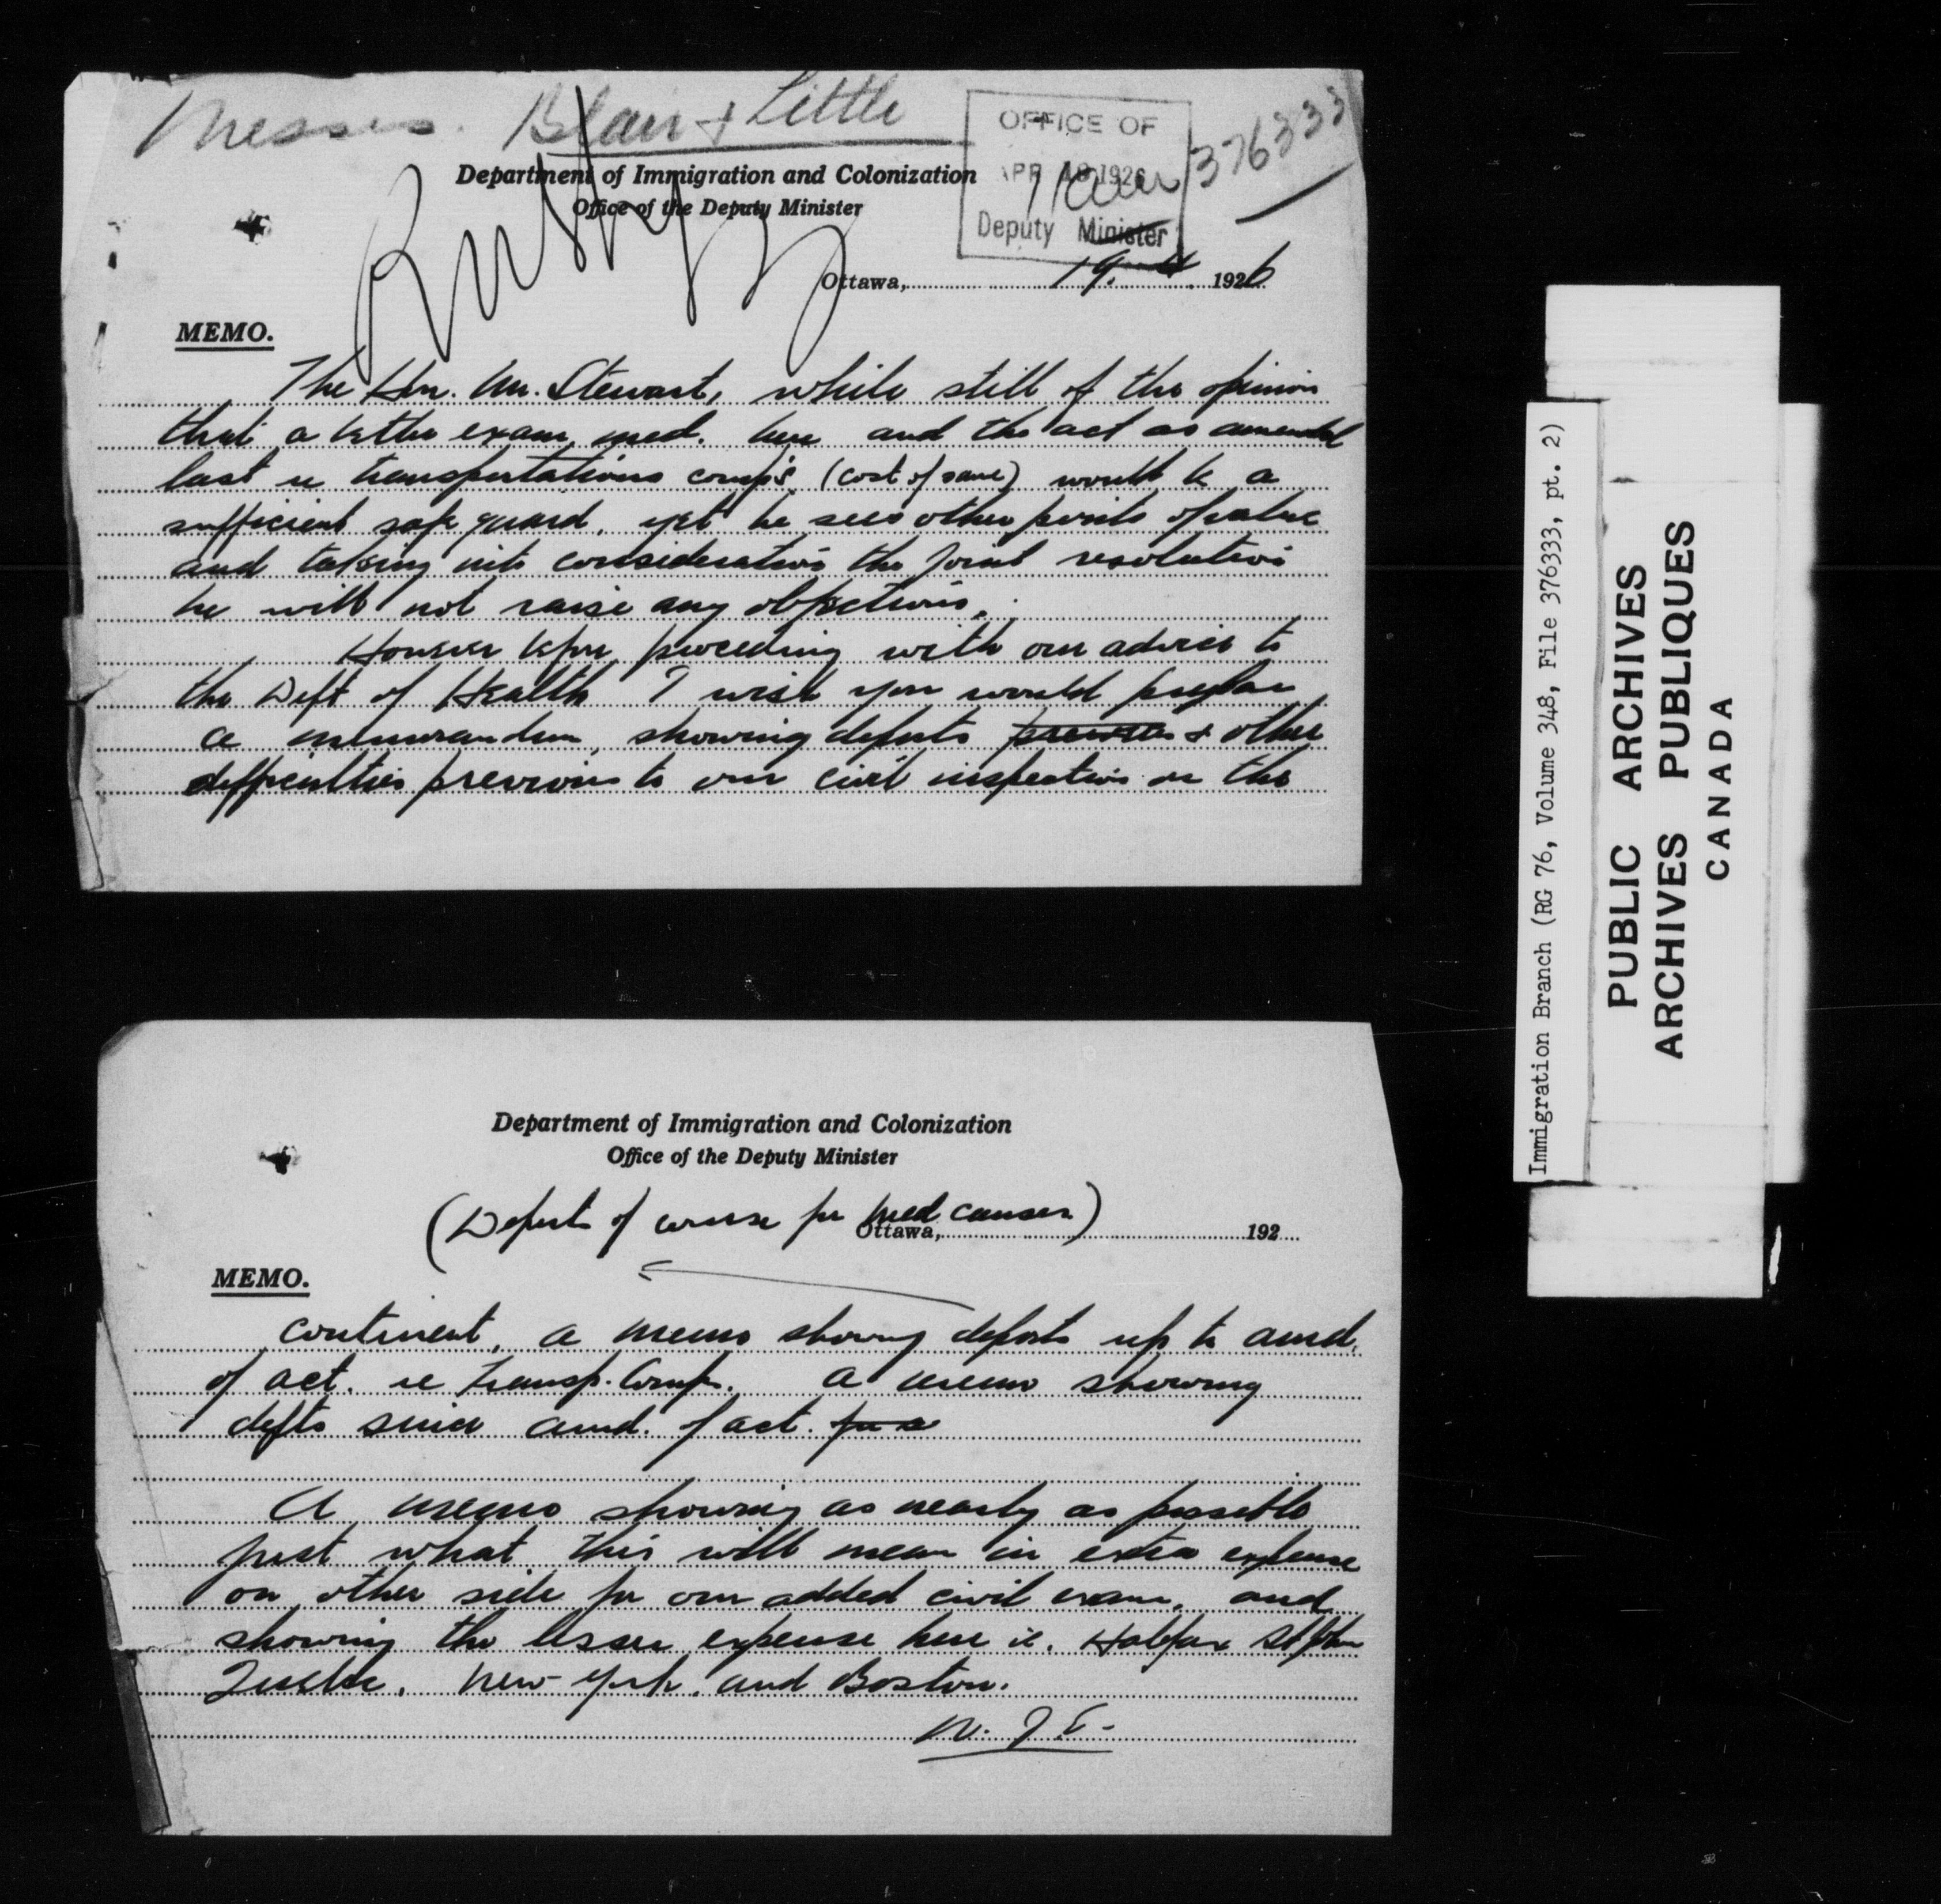 Messrs. Blair & Little
OFFICE OF
APR 19 1926
Deputy Minister
376333
Department of Immigration and Colonization
Office of the Deputy Minister
Rush
Ottawa, 19. 4 1926
MEMO.
The Hon. Mr. Stewart, while still of the opinion
that a better exam, med. here and the act as amended
last re transportations comp's (cost of same) would be a
sufficient safe guard, yet he sees other points of value
and taking into consideration the joint resolution
he will not raise any objections.
However before proceeding with our advice to
the Dept of Health I wish you would prepare
a memorandum, showing deports previous & other
difficulties previous to our civil inspection on the
Department of Immigration and Colonization
Office of the Deputy Minister
(Deports of course for med causes)
Ottawa, 192
MEMO.
continent, a memo showing deports up to amd.
of act. re transp. Comp. a memo showing
depts since amd. of act. for a
A memo showing as nearly as possible
just what this will mean in extra expense
on other side for our added civil exam. and
showing the lesser expense here ie. Halifax St John
Quebec, New York, and Boston.
W. J. E.
Immigration Branch (RG 76, Volume 348, File 376333, pt. 2)
PUBLIC ARCHIVES
ARCHIVES PUBLIQUES
CANADA